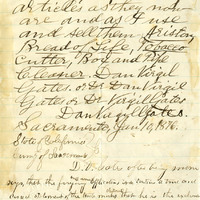 articles as they now
are and as I use
and sell them, Ariston
Bread of Life, Tobacco
Cutter, Box and Pipe
Cleaner. Dan Virgil
Gates. or Dr Dan Virgil
Gates or Dr Virgil Gates
Dan Virgil Gates.
Sacramento, Jan 10, 1876.
State of California
County of Sacramento
D. V. Gates being sworn
says, that the foregoing application is a true and